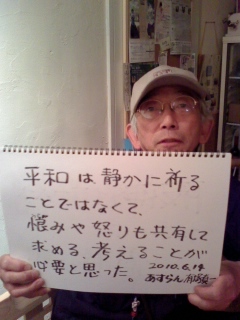 平和は静かに祈る
ことではなくて、
憎みや怒りも共有して
求める、考えることが
必要と思った。
2010.6.14
あすらん